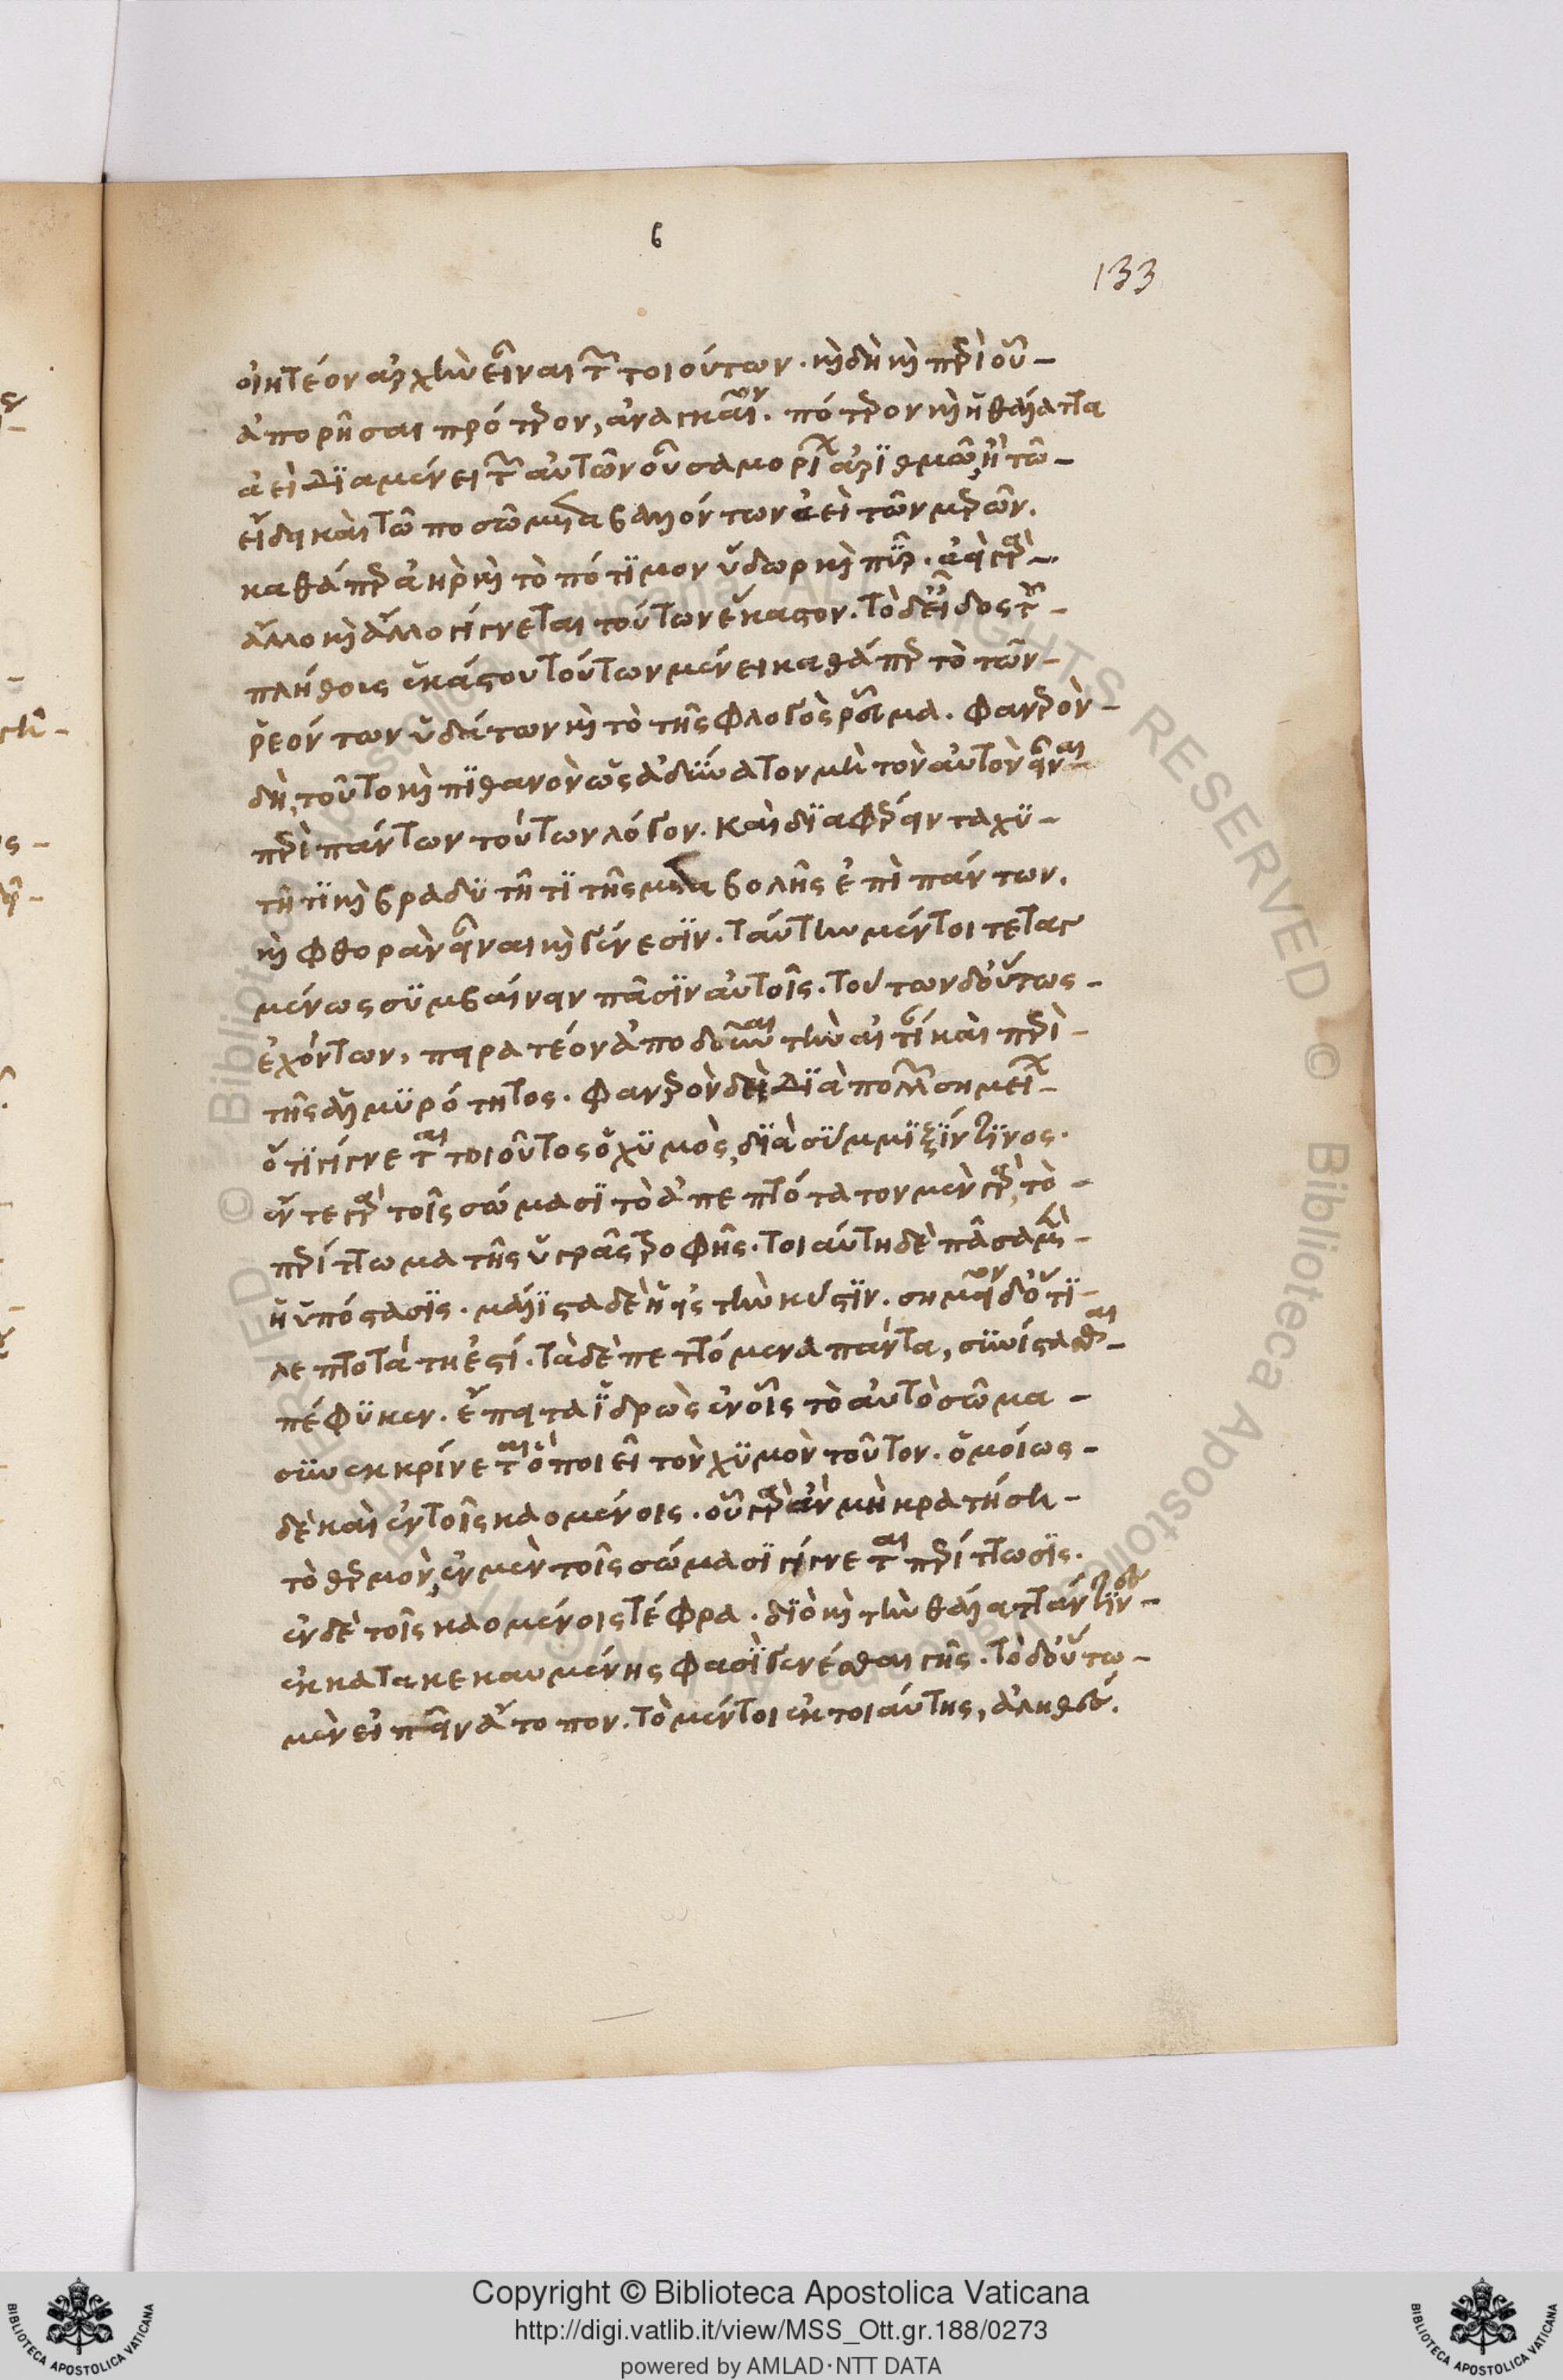 6
133
οἰητέον ἀρχὴν εἶναι τῶν τοιούτων. καὶ δὴ καὶ περὶ οὗ
ἀπορῆσαι πρότερον, ἀναγκαῖον. πότερον καὶ ἡ θάλαττα
ἀεὶ διαμένει τῶν αὐτῶν οὖσα μορίων ἀριθμῷ, ἢ τῷ
εἴδει καὶ τῷ ποσῷ μεταβαλλόντων ἀεὶ τῶν μερῶν.
καθάπερ ἀὴρ καὶ τὸ πότιμον ὕδωρ καὶ πῦρ. ἀεὶ γὰρ
ἄλλο καὶ ἄλλο γίγνεται τούτων ἕκαστον. τὸ δ' εἶδος τοῦ
πλήθους ἑκάστου τούτων μένει καθάπερ τὸ τῶν
ῥεόντων ὑδάτων καὶ τὸ τῆς φλογὸς ῥεῦμα. φανερὸν
δὴ, τοῦτο καὶ πιθανὸν ὡς ἀδύνατον μὴ τὸν αὐτὸν εἶναι
περὶ πάντων τούτων λόγον. καὶ διαφέρειν ταχυ
τῆτι καὶ βραδυτῆτι τῆς μεταβολῆς ἐπὶ πάντων.
καὶ φθορὰν εἶναι καὶ γένεσιν. ταύτην μέντοι τεταγ
μένως συμβαίνειν πᾶσιν αὐτοῖς. τούτων δ' οὕτως
ἐχόντων, πειρατέον ἀποδοῦναι τὴν αἰτίαν καὶ περὶ
τῆς ἁλμυρότητος. φανερὸν δὴ διὰ πολλῶν σημείων
ὅτι γίγνεται τοιοῦτος ὁ χυμὸς, διὰ σύμμιξίν τινος.
ἔν τε γὰρ τοῖς σώμασι τὸ ἀπεπτότατον μὲν γὰρ, τὸ
περίττωμα τῆς ὑγρᾶς τροφῆς. τοιαύτη δὲ πᾶσα μὲν
ἡ ὑπόστασις. μάλιστα δὲ ἡ εἰς τὴν κύστιν. σημεῖον δ' ὅτι
λεπτοτάτη ἐστί. τὰ δὲ πεττόμενα πάντα, συνίστασθαι
πέφυκεν. ἔπειτα ἱδρὼς ἐν οἷς τὸ αὐτὸ σῶμα
συνεκκρίνεται ὃ ποιεῖ τὸν χυμὸν τοῦτον. ὁμοίως
δὲ καὶ ἐν τοῖς καομένοις. οὗ γὰρ ἂν μὴ κρατήσῃ
τὸ θερμὸν, ἐν μὲν τοῖς σώμασι γίγνεται περίττωσις.
ἐν δὲ τοῖς καομένοις τέφρα. διὸ καὶ τὴν θάλατταν τινὲς
ἐκ κατακεκαυμένης φασὶ γενέσθαι γῆς. τὸ δ' οὕτω
μὲν εἰπεῖν ἄτοπον. τὸ μέντοι ἐκ τοιαύτης, ἀληθές.
Copyright © Biblioteca Apostolica Vaticana
http://digi.vatlib.it/view/MSS_Ott.gr.188/0273
powered by AMLAD·NTT DATA